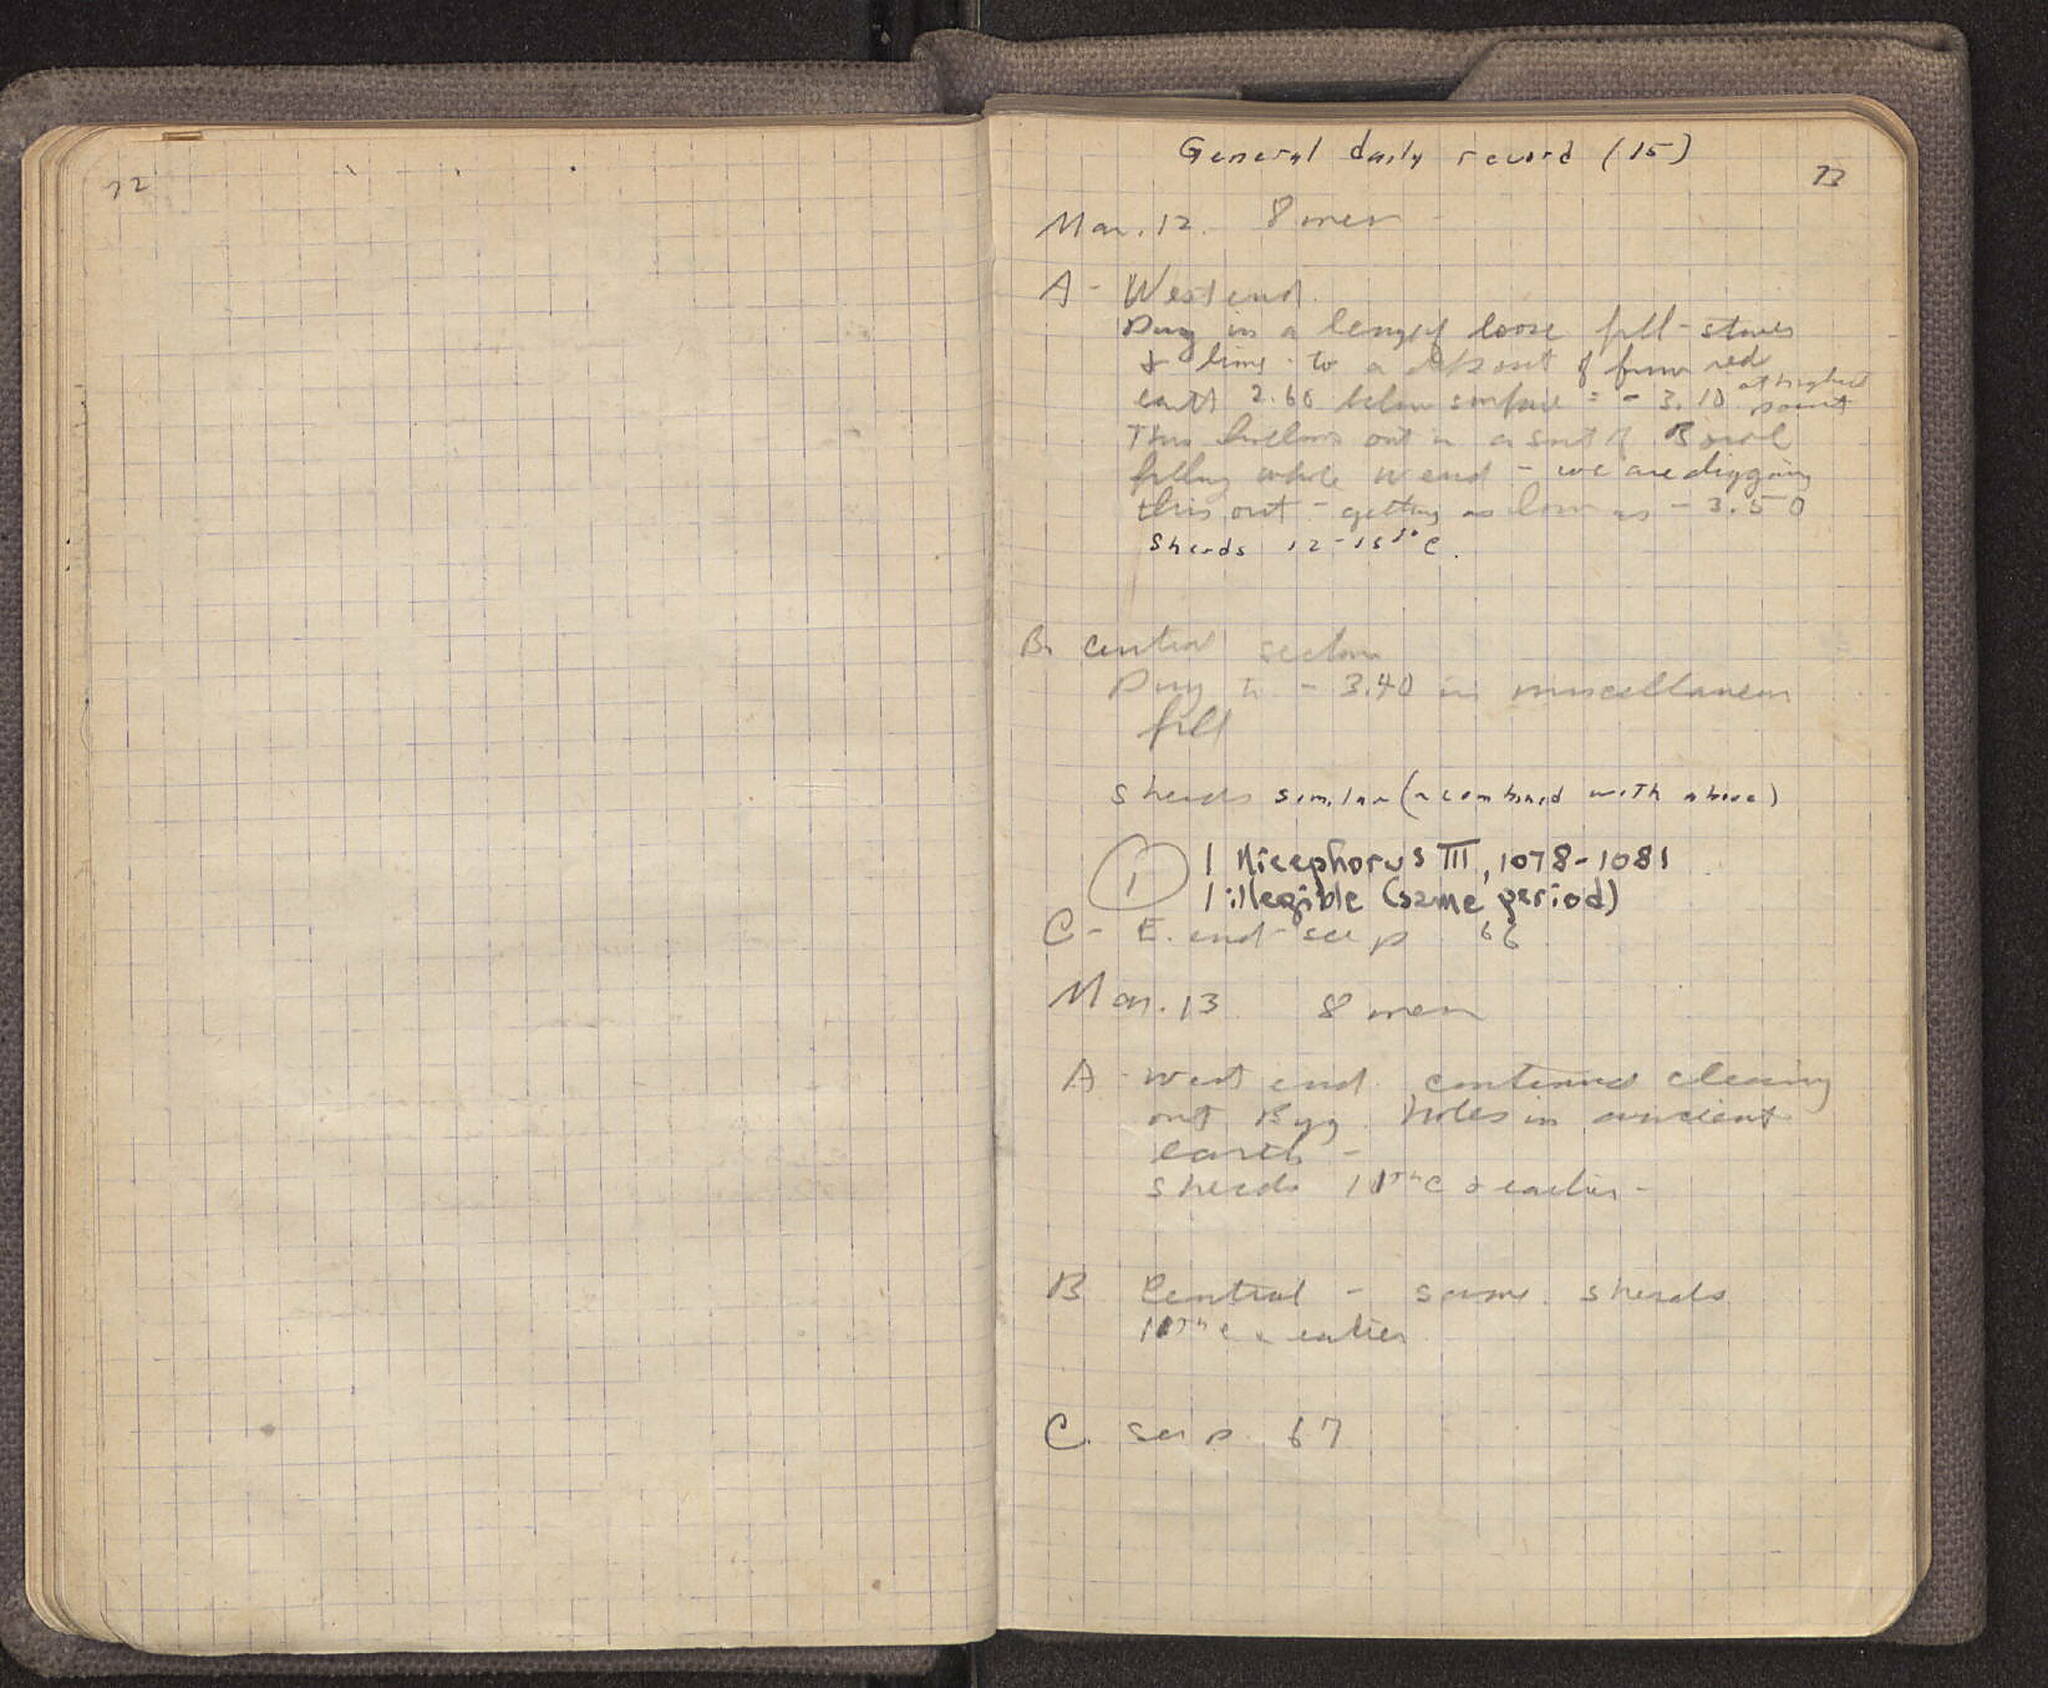 72
General daily record (15)
73
Mar. 12. 8 men
A - West end.
Dug in a loose fill - stones
& lime - to a deposit of firm red
earth 2.60 below surface = - 3.10 at highest point
This hollows out in a sort of Bowl
filling whole W end - we are digging
this out - getting as low as - 3.50
Sherds 12 - 15th C.
B. Central section
Dug to - 3.40 in miscellaneous
fill
Sherds similar (& combined with above)
1 1 Nicephorus III, 1078-1081
1 illegible (same period)
C - E. end - see p. 66
Mar. 13 8 men
A - West end. continued clearing
out Byz. holes in ancient
earth -
Sherds 11th C & earlier -
B Central - same. sherds
11th C & earlier
C. See p. 67